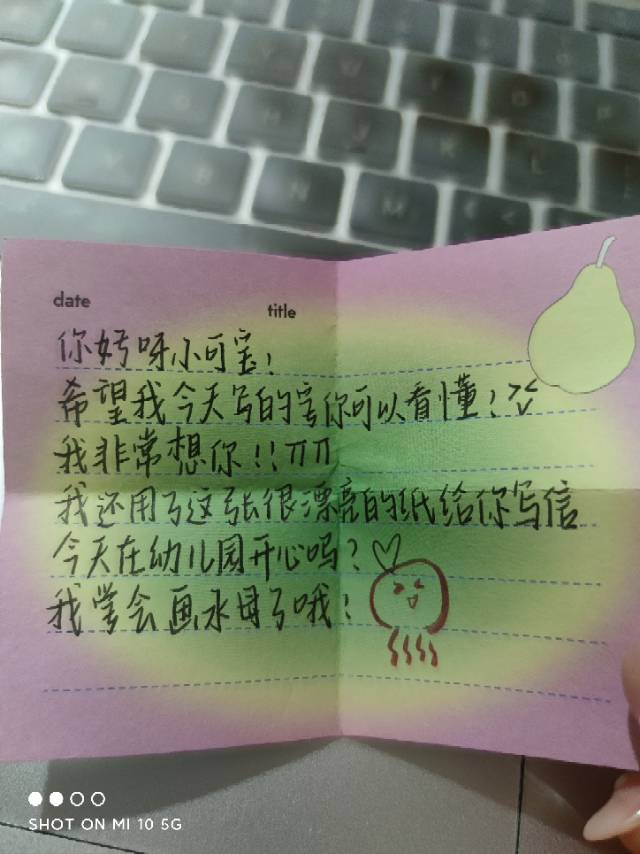 date
title
你好呀小可宝!
希望我今天写的字你可以看懂!
我非常想你!!
我还用了这张很漂亮的纸给你写信
今天在幼儿园开心吗?
我学会画水母了哦!
SHOT ON MI 10 5G